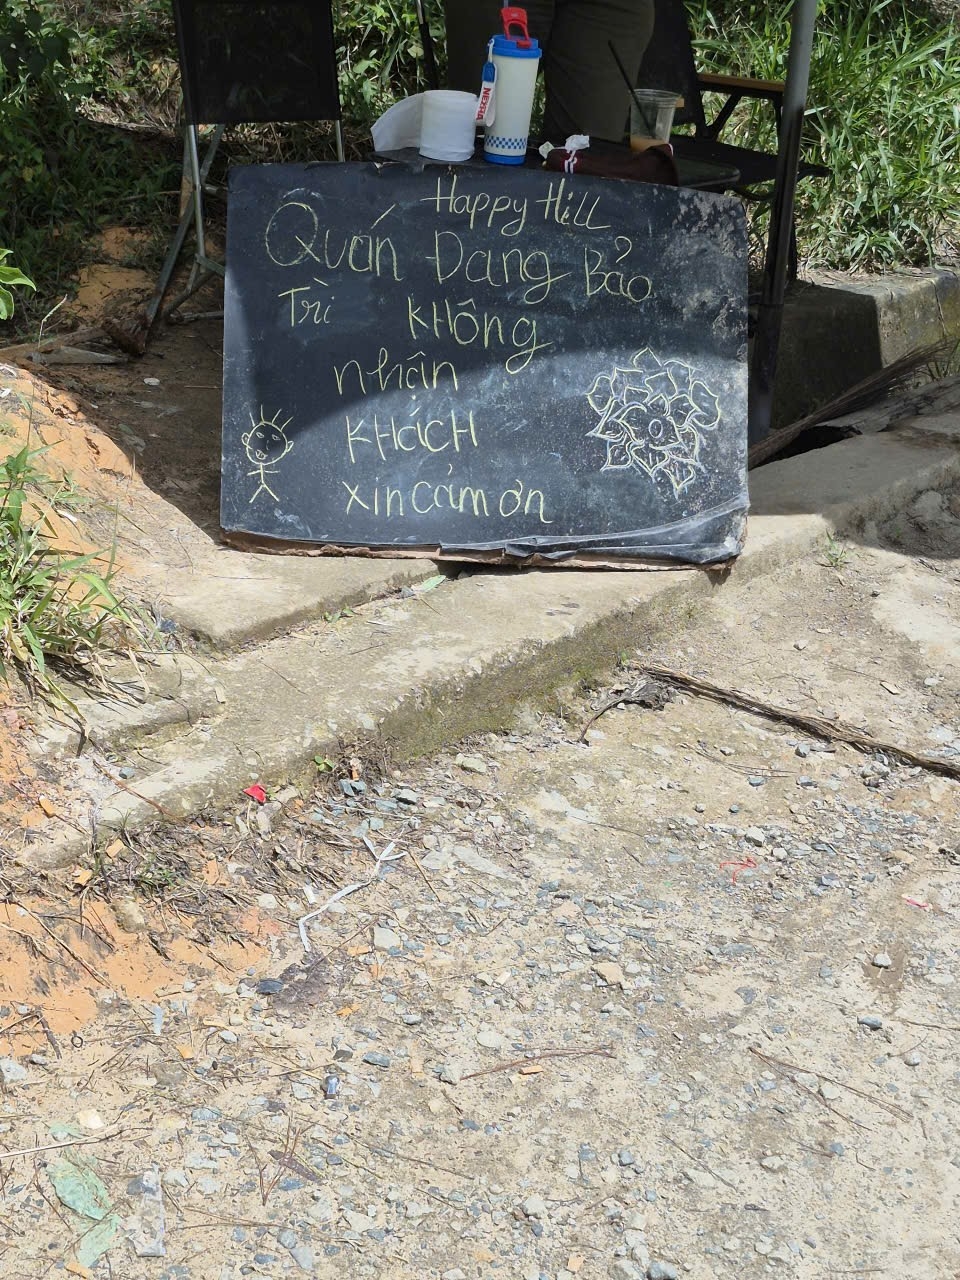 Happy Hill
Quán Đang Bảo
Trì không
nhận
khách
xin cảm ơn
NEXTRA